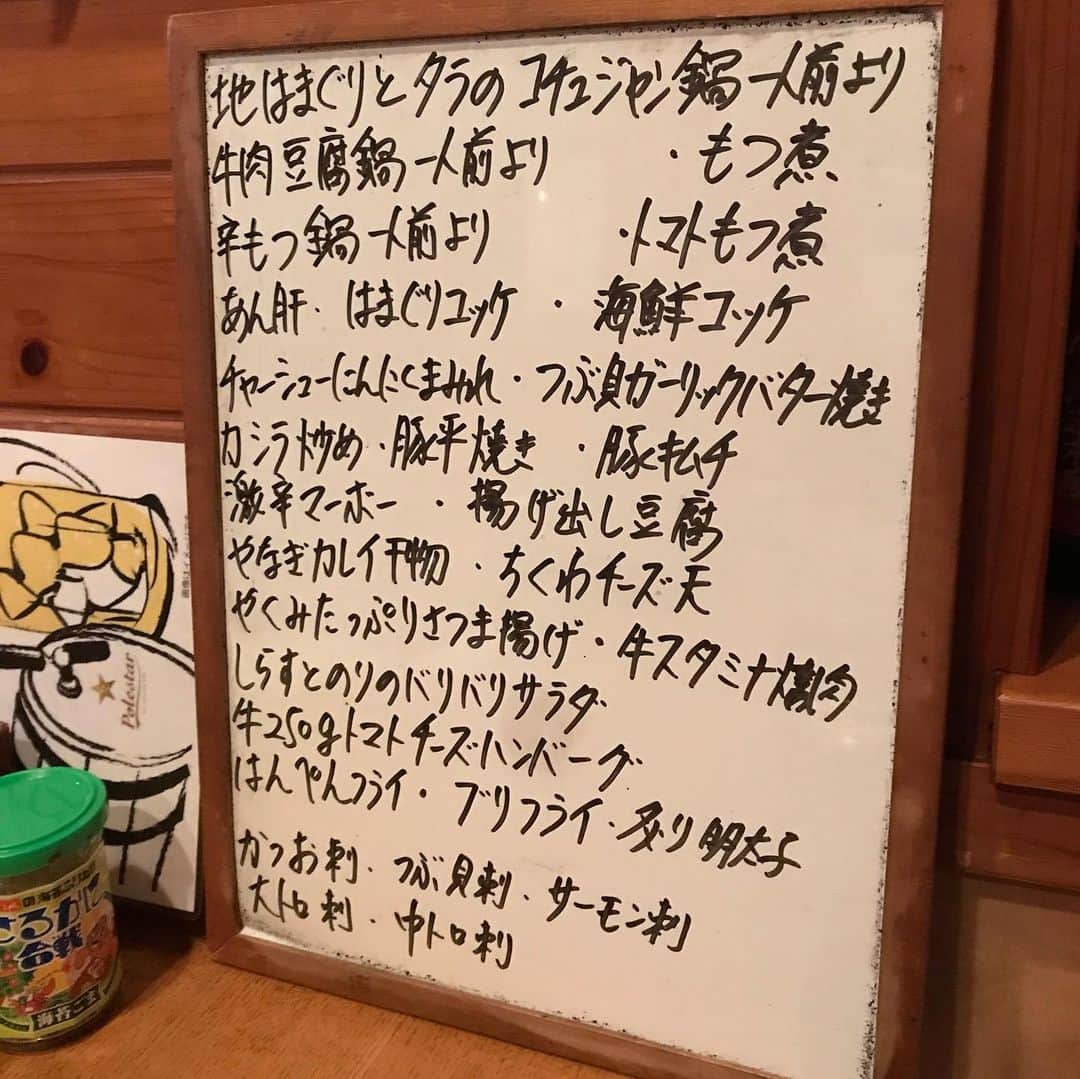 地はまぐりとタラのコチュジャン鍋一人前より
牛肉豆腐鍋一人前より ・もつ煮
辛もつ鍋一人前より ・トマトもつ煮
あん肝・はまぐりユッケ・海鮮ユッケ
チャーシューにんにくまみれ・つぶ貝ガーリックバター焼き
カシラ炒め・豚平焼き・豚キムチ
激辛マーボー・揚げ出し豆腐
やなぎカレイ干物・ちくわチーズ天
やくみたっぷりさつま揚げ・牛スタミナ焼肉
しらすとのりのバリバリサラダ
牛250gトマトチーズハンバーグ
はんぺんフライ・ブリフライ・炙り明太子
かつお刺・つぶ貝刺・サーモン刺
大トロ刺・中トロ刺
Polestar
さるかに
合戦
海苔ごま